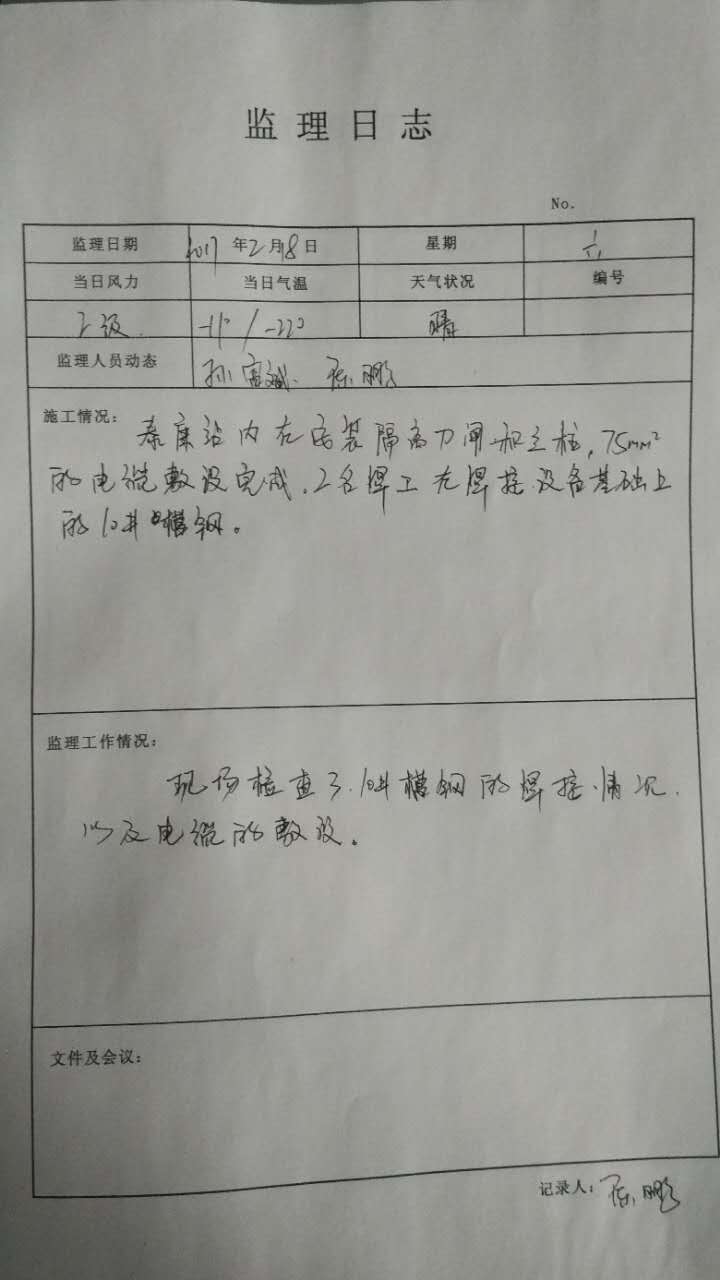 监理日志
No.
监理日期 2017年2月18日 星期 六
当日风力 当日气温 天气状况 编号
2级 -11°/-22° 晴
监理人员动态 孙 陈鹏
施工情况: 泰康站内在安装隔离刀闸和立柱,75mm²
的电缆敷设完成,2名焊工在焊接设备基础上
的10#槽钢。
监理工作情况:
现场检查了10#槽钢的焊接情况,
以及电缆的敷设。
文件及会议:
记录人: 陈鹏